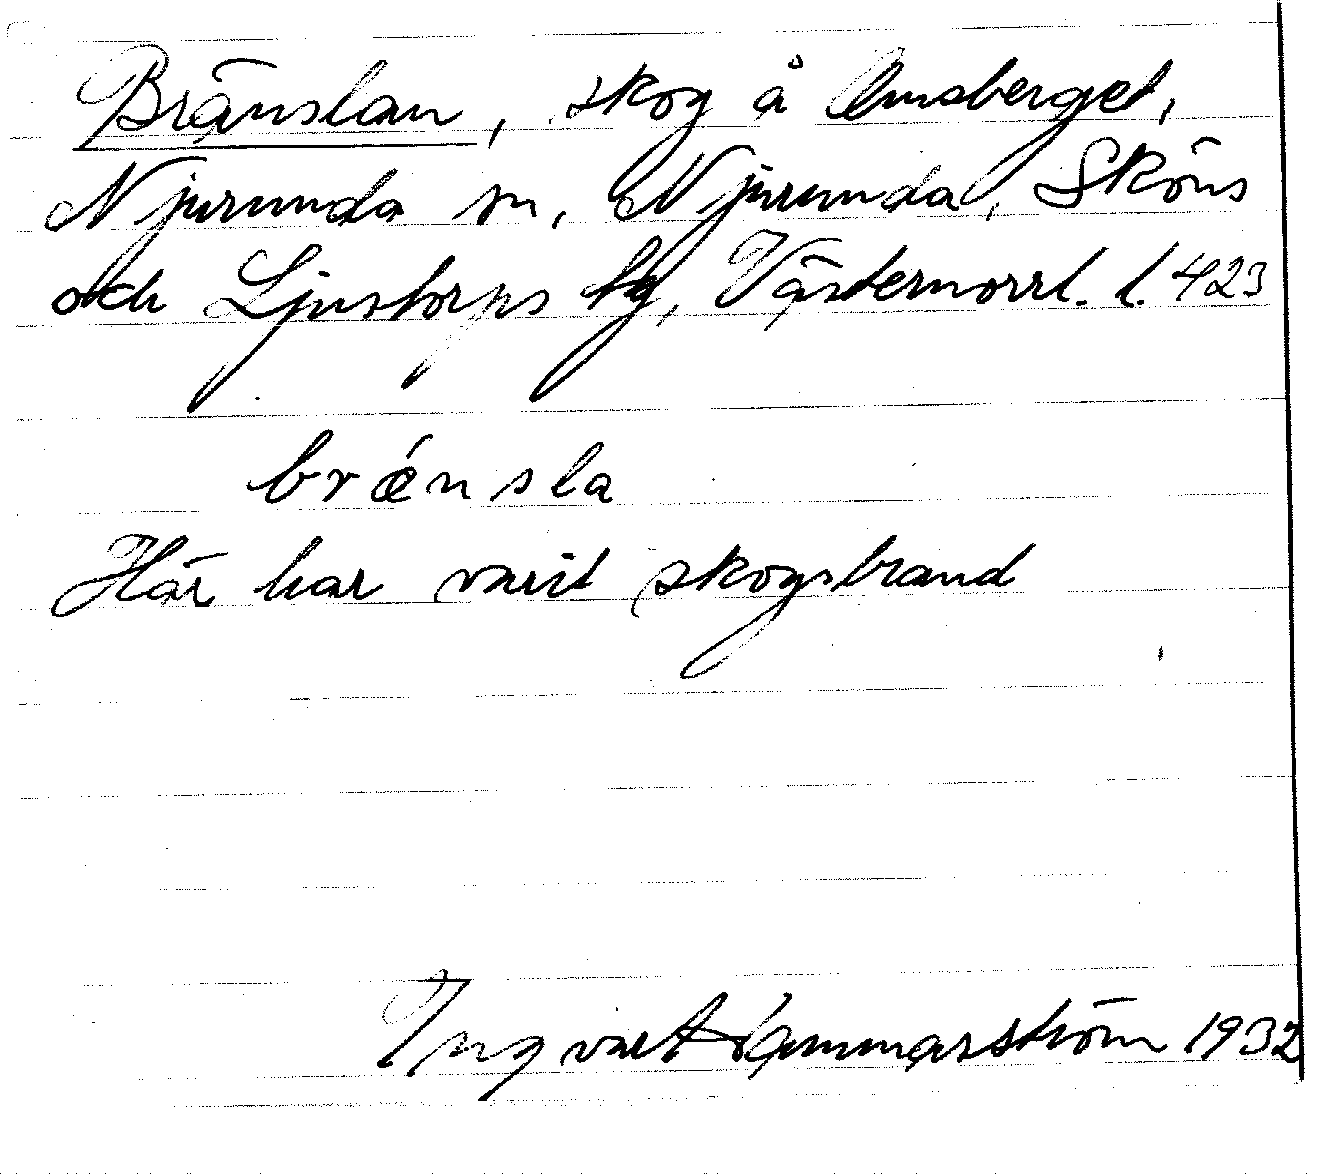 Bränslan, skog å Omsberget,
Njurunda sn, Njurunda, Sköns
och Ljustorps tg, Västernorrl. l. 423
brǽnsla
Här har varit skogsbrand
Ingvar Hammarström 1932